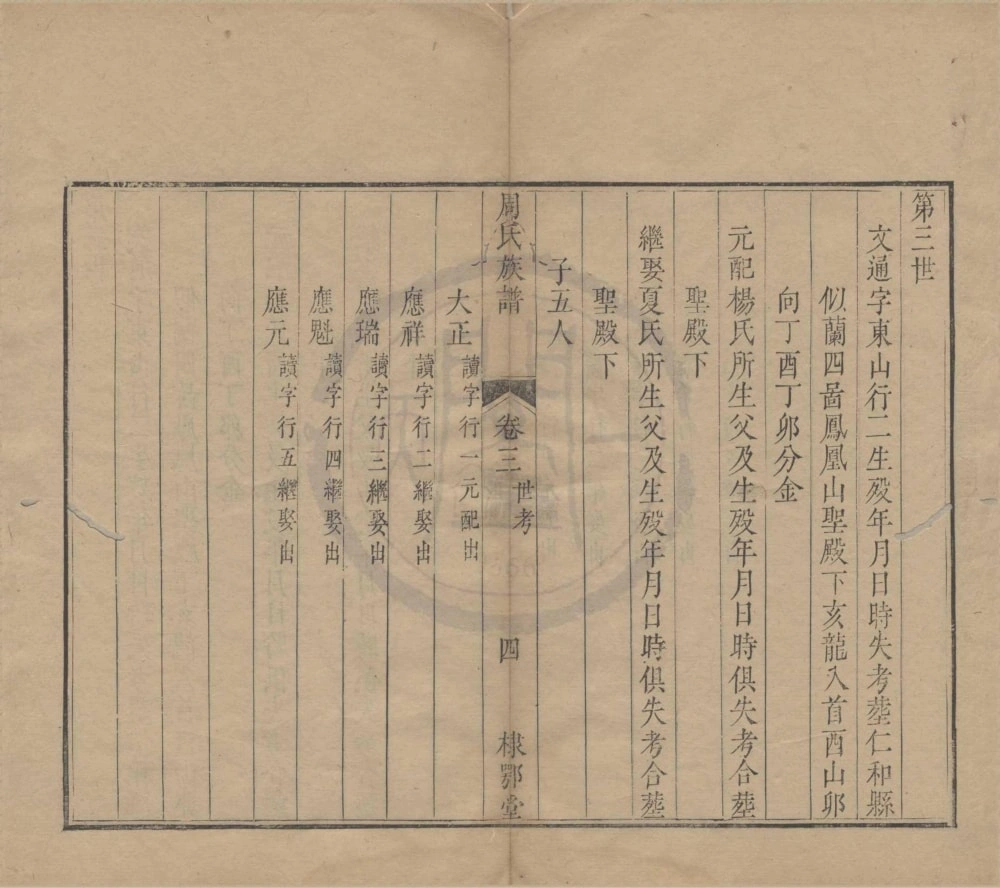 第三世
文通字東山行二生歿年月日時失考塟仁和縣
似蘭四啚鳳凰山聖殿下亥龍入首酉山卯
向丁酉丁卯分金
元配楊氏所生父及生歿年月日時俱失考合塟
聖殿下
繼娶夏氏所生父及生歿年月日時俱失考合塟
聖殿下
子五人
周氏族譜 卷三 世考 四 棣鄂堂
大正 讀字行一元配出
應祥 讀字行二繼娶出
應瑞 讀字行三繼娶出
應魁 讀字行四繼娶出
應元 讀字行五繼娶出